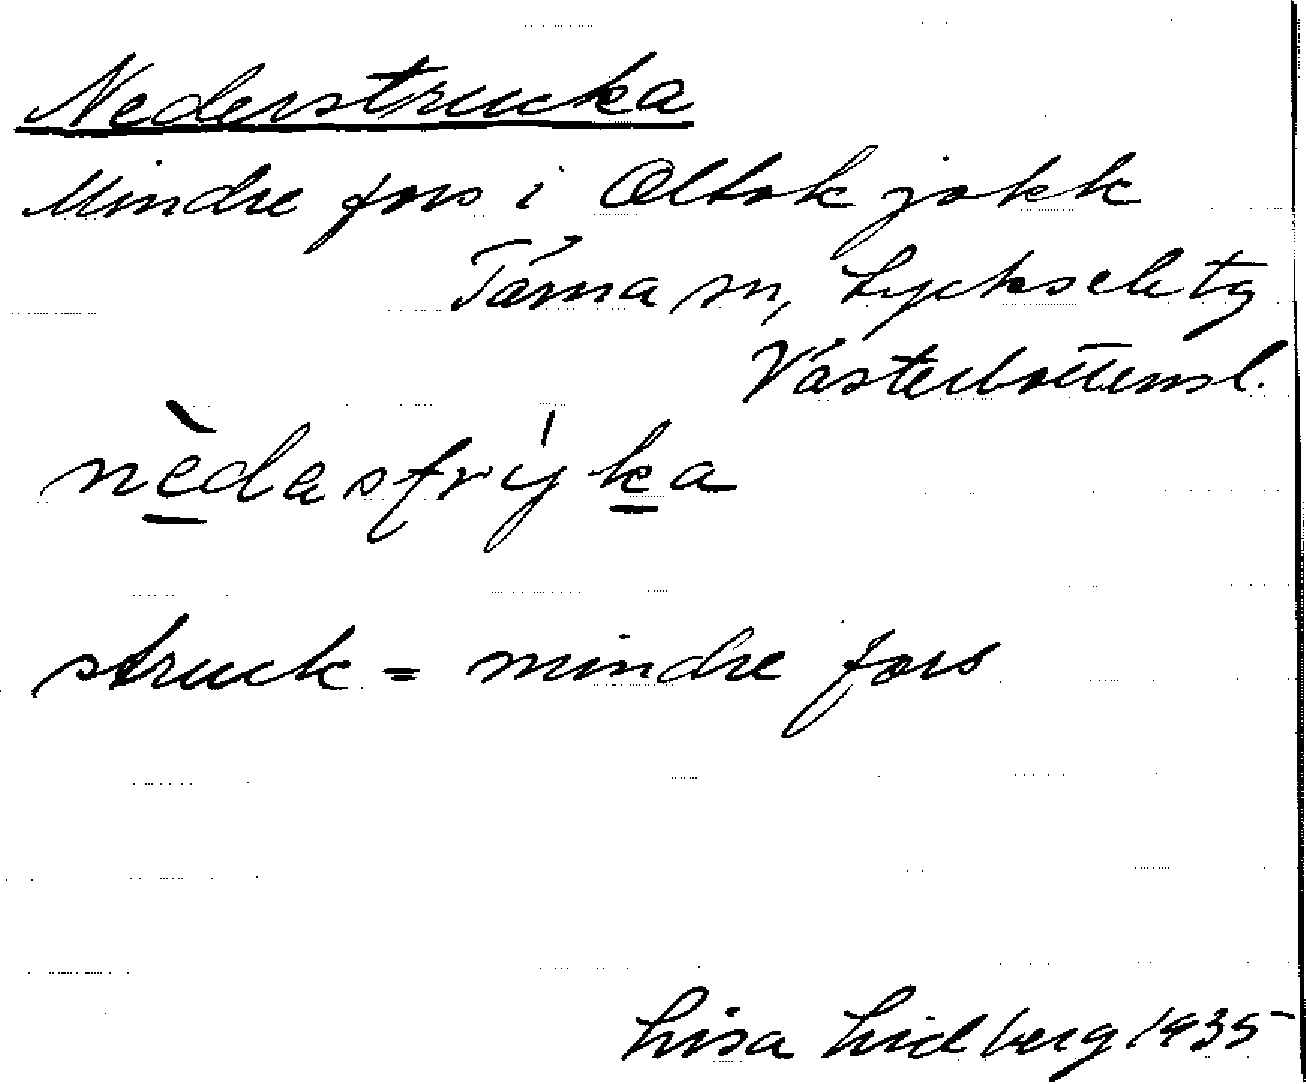 Nederstrucka
Mindre fors i Oltokjokk
Tärna sn, Lycksele tg
Västerbottensl.
nèdastrýka
struck = mindre fors
Lisa Lidberg 1935